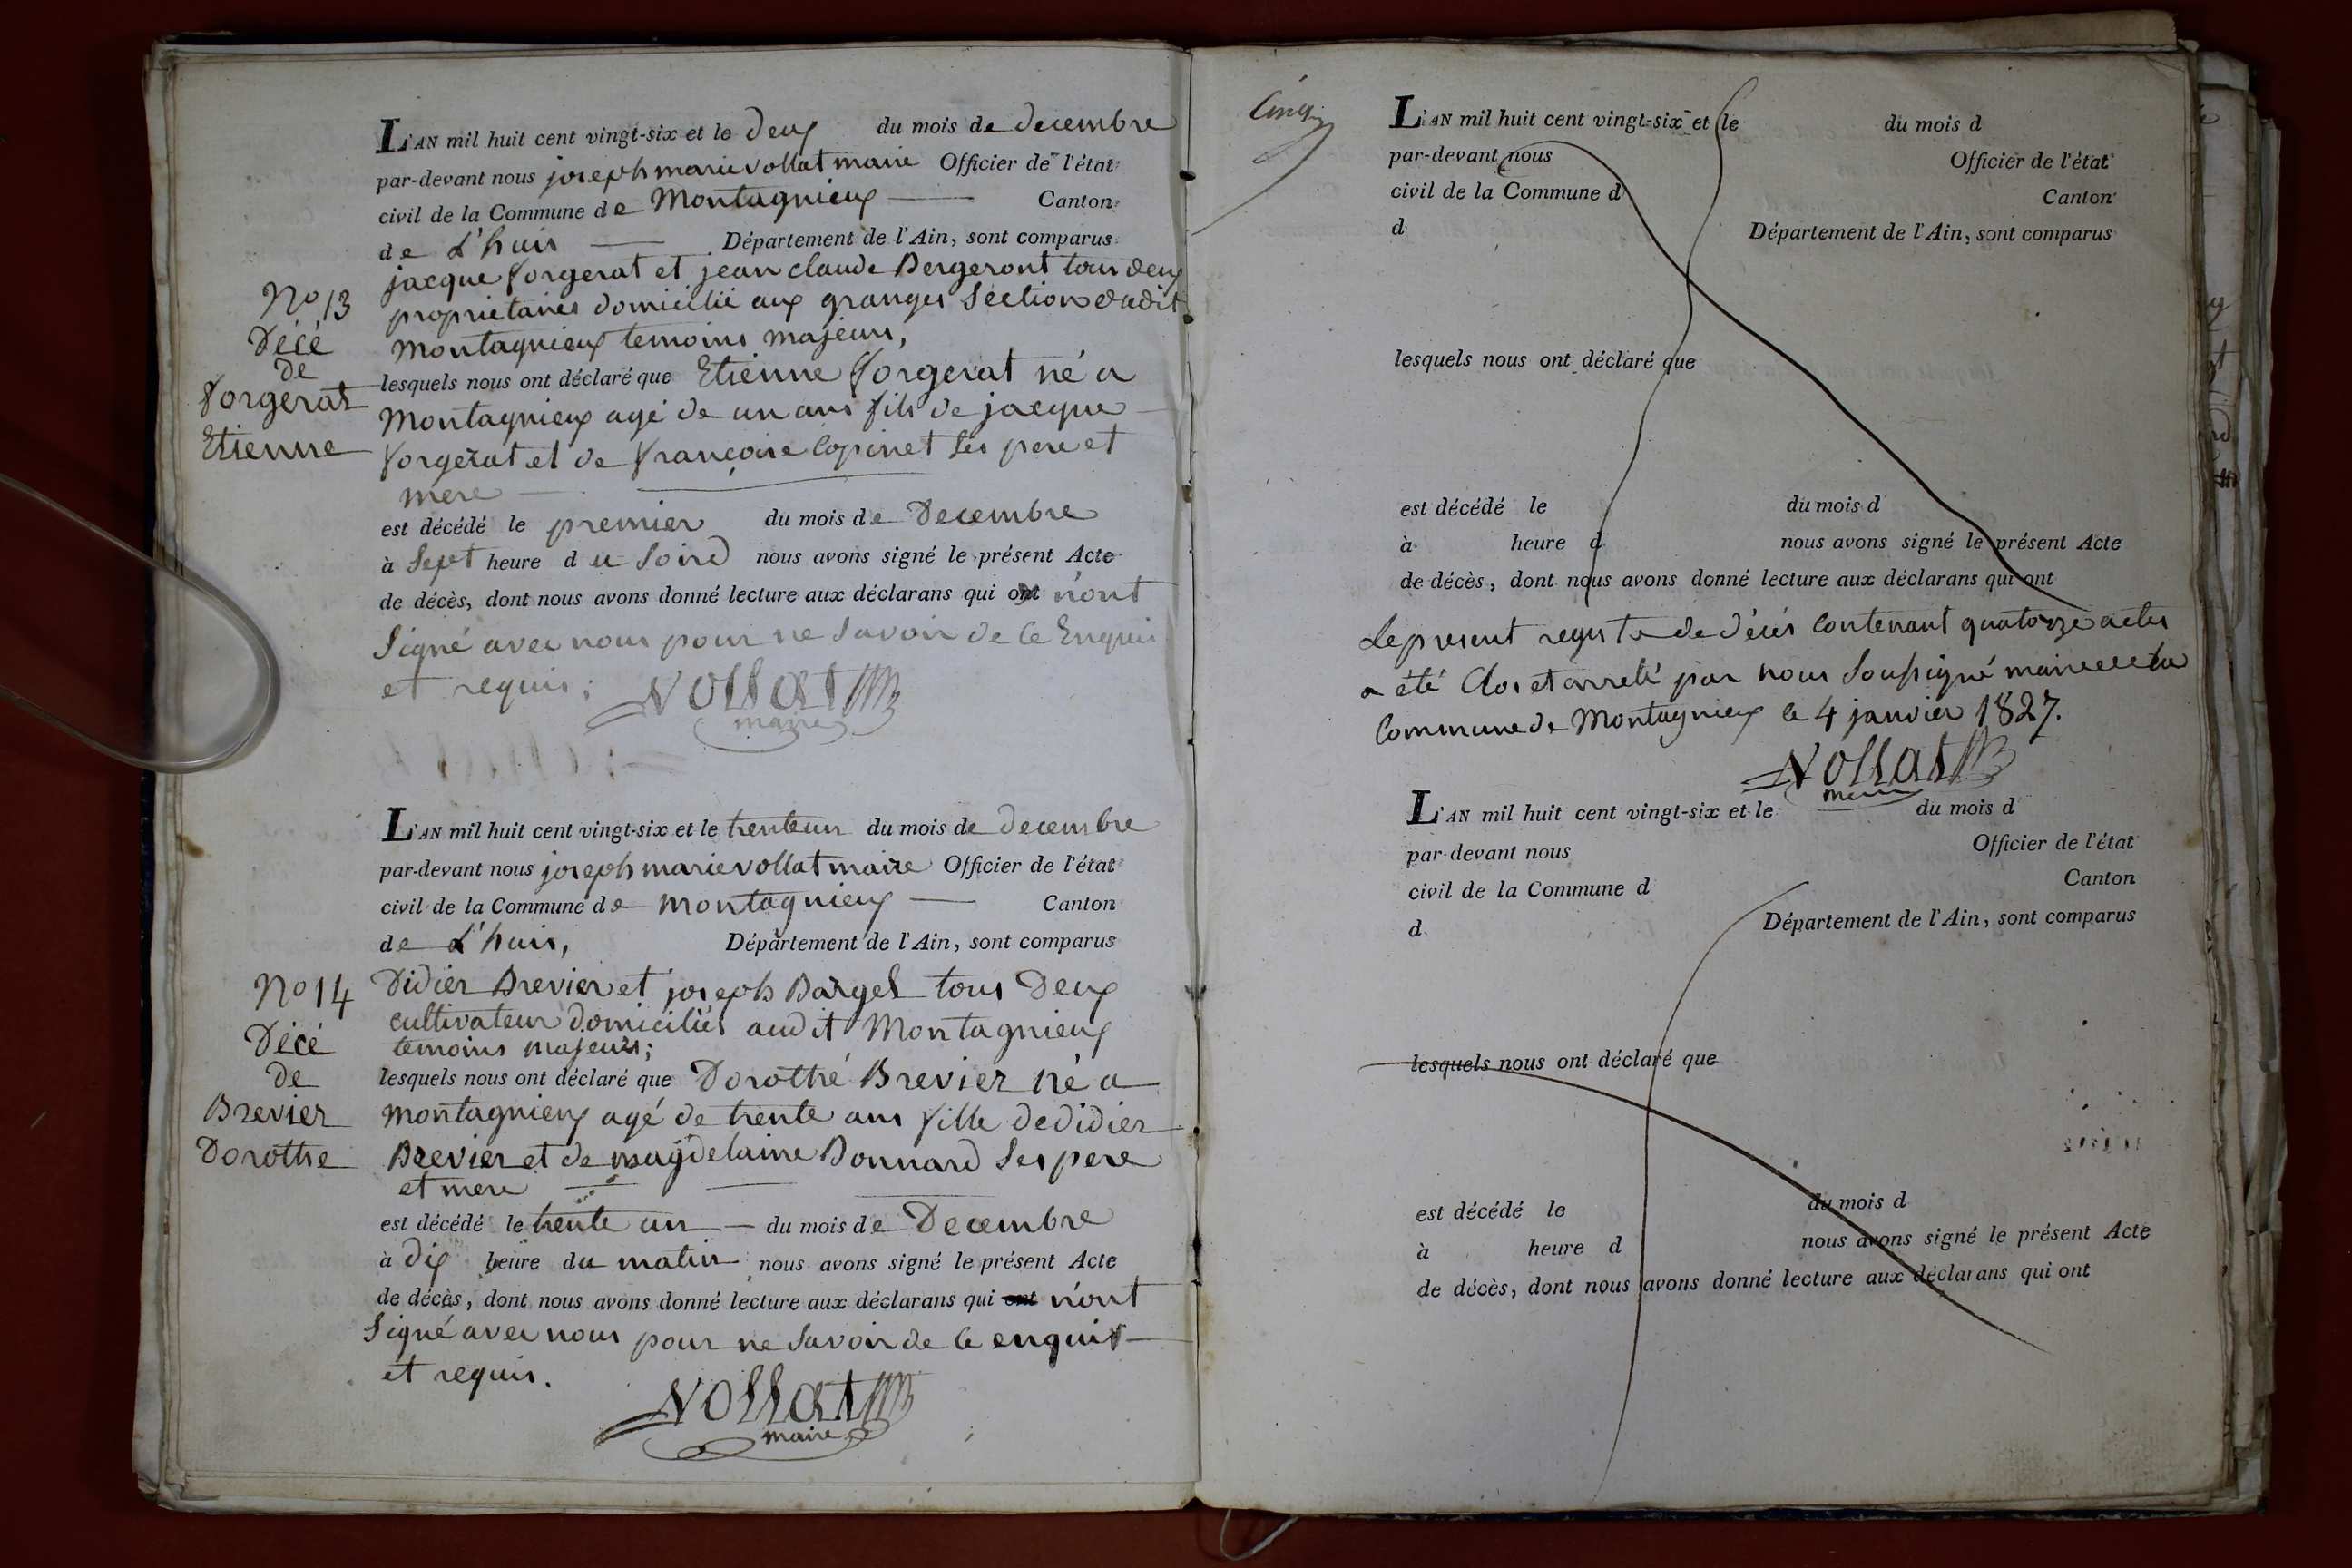 L'AN mil huit cent vingt-six et le deux du mois de decembre
par-devant nous joseph marie vollat maire Officier de l'état
civil de la Commune de Montagnieux Canton
de L'huis Département de l'Ain, sont comparus
jacque forgerat et jean claude Bergeront tous deux
proprietaires domicilié aux granges Section dudit
Montagnieux temoins majeurs,
No 13
Décé
de
forgerat
Etienne
lesquels nous ont déclaré que Etienne forgerat né a
Montagnieux agé de un ans fils de jacque
forgerat et de françoise Copinet Ses pere et
mere
est décédé le premier du mois de Decembre
à Sept heure du Soird nous avons signé le présent Acte
de décès, dont nous avons donné lecture aux déclarans qui ont n'ont
Signé avec nous pour ne Savoir de ce Enquis
et requis; Vollat
maire
L'AN mil huit cent vingt-six et le trenteun du mois de decembre
par-devant nous joseph marie vollat maire Officier de l'état
civil de la Commune de montagnieux Canton
de L'huis, Département de l'Ain, sont comparus
No 14
Décé
de
Brevier
Dorothe
Didier Brevier et joseph Bargel tous Deux
cultivateur domiciliés audit Montagnieux
temoins majeurs;
lesquels nous ont déclaré que Dorothé Brevier né a
montagnieux agé de trente ans fille de didier
Brevier et de magdelaine Bonnard Ses pere
et mere
est décédé le trente un du mois de Decembre
à dix heure du matin nous avons signé le présent Acte
de décès, dont nous avons donné lecture aux déclarans qui ont n'ont
Signé avec nous pour ne Savoir de ce enquis
et requis.
Vollat
maire
Cinq
L'AN mil huit cent vingt-six et le du mois d
par-devant nous Officier de l'état
civil de la Commune d Canton
d Département de l'Ain, sont comparus
lesquels nous ont déclaré que
est décédé le du mois d
à heure d nous avons signé le présent Acte
de décès, dont nous avons donné lecture aux déclarans qui ont
Le present registre de décés Contenant quatorze actes
a été Clos et arreté par nous Soussigné maire de la
Commune de Montagnieux le 4 janvier 1827.
Vollat
maire
L'AN mil huit cent vingt-six et le du mois d
par-devant nous Officier de l'état
civil de la Commune d Canton
d Département de l'Ain, sont comparus
lesquels nous ont déclaré que
est décédé le du mois d
à heure d nous avons signé le présent Acte
de décès, dont nous avons donné lecture aux déclarans qui ont